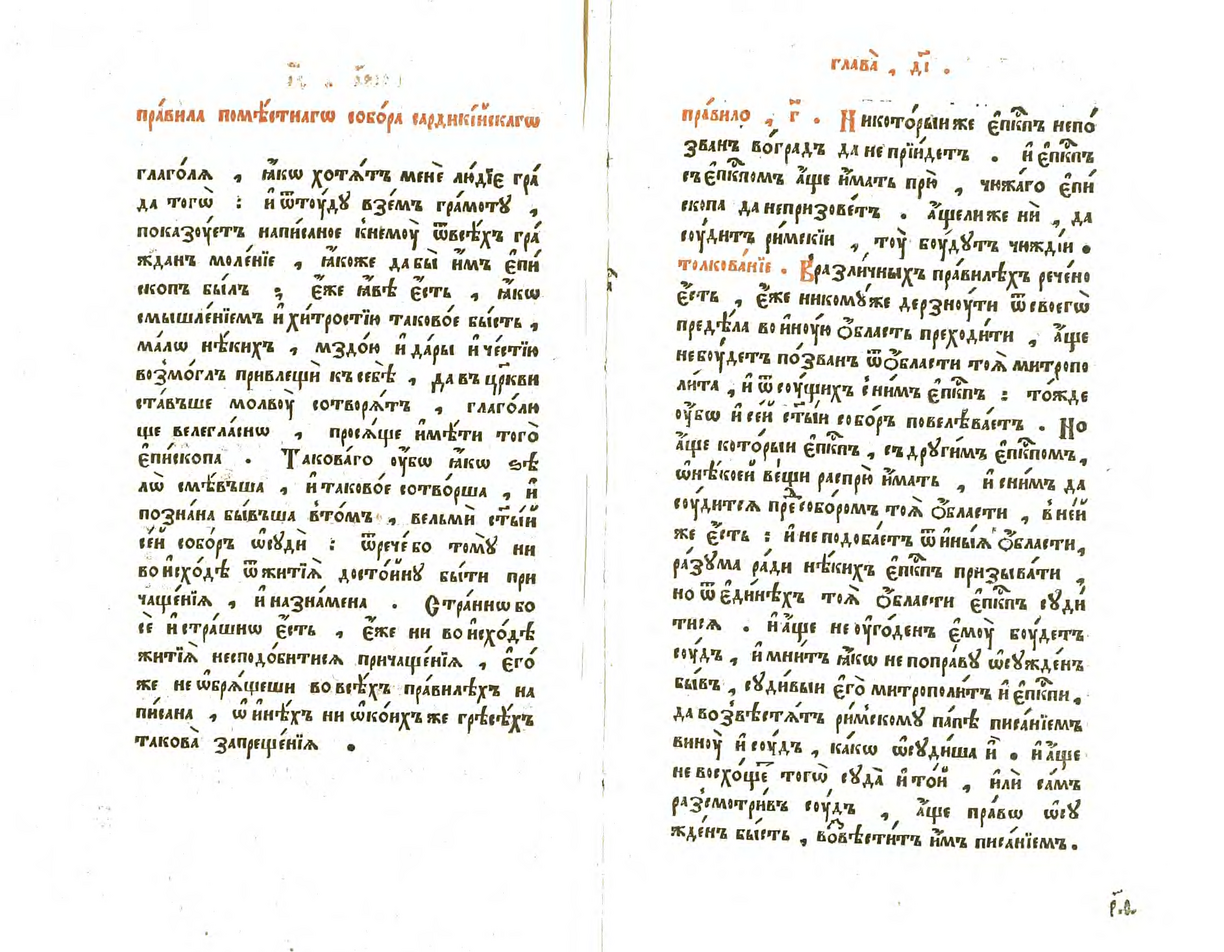 пра́вила помѣ́стнагѡ собо́ра сардикі́йскагѡ
глаго́лѧ , ꙗ҆́кѡ хотѧ́тъ менѐ лю́дїе гра́
да тогѡ̀ : и҆ ѿтꙋ́дꙋ взе́мъ гра́мотꙋ ,
показꙋ́етъ напи́саное кнемꙋ̀ ѿвсѣ́хъ гра́
жданъ моле́нїе , ꙗ҆́коже дабы̀ и҆̀мъ є҆пи́
скопъ бы́лъ ; є҆́же ꙗ҆́вѣ є҆́сть , ꙗ҆́кѡ
смышле́нїемъ и҆ хи́тростїю таково́е бы́сть ,
ма́лѡ нѣ́кихъ , мздо́ю и҆ да́ры и҆ че́стїю
возмо́глъ привлещѝ къ себѣ̀ , да въ цр҃кви
ста́въше молвꙋ̀ сотворѧ́тъ , глаго́лю
ще велегла́снѡ , просѧ́ще и҆мѣ́ти того̀
є҆пи́скопа . Такова́го ᲂу҆́бѡ ꙗ҆́кѡ ѕѣ
лѡ̀ смѣ́въша , и҆ таково́е сотво́рша , и҆
позна́на бы́въша вто́мъ , вельмѝ ст҃ы́й
се́й собо́ръ ѡ҆сꙋдѝ : ѿрече́ бо томꙋ̀ ни
во и҆схо́дѣ ѿ житїѧ̀ досто́йнꙋ бы́ти при
чаще́нїѧ , и҆ назна́мена . Стра́ннѡ бо
сѐ и҆ стра́шнѡ є҆́сть , є҆́же ни во и҆схо́дѣ
житїѧ̀ несподо́битисѧ причаще́нїѧ , є҆го́
же не ѡ҆брѧ́щеши во всѣ́хъ пра́вилѣхъ на
писана , ѡ҆ и҆нѣ́хъ ни ѡ҆ ко́ихъ же грѣсѣ́хъ
такова̀ запреще́нїѧ .
глава̀ , д҃і .
пра́вило , г҃ . Никото́рыи же є҆пⷭ҇кпъ непо́
званъ во́градъ да не прїи́детъ . и҆ є҆пⷭ҇кпъ
съ є҆пⷭ҇кпомъ а҆́ще и҆́мать прю̀ , чюжа́го є҆пи́
скопа да непризове́тъ . а҆́ще ли же нѝ , да
сꙋ́дитъ ри́мскїи , тꙋ̀ бꙋ́дꙋтъ чюжді́и .
толкова́нїе . В разли́чныхъ пра́вилѣхъ рече́но
є҆́сть , є҆́же никомꙋ́же дерзнꙋ́ти ѿ своегѡ̀
предѣ́ла во и҆нꙋ́ю ѻ҆́бласть преходи́ти , а҆́ще
не бꙋ́детъ по́званъ ѿ ѻ҆́бласти тоѧ̀ митропо
ли́та , и҆ ѿ сꙋ́щихъ с ни́мъ є҆пⷭ҇кпъ : то́жде
ᲂу҆́бѡ и҆ се́й ст҃ы́и собо́ръ повелѣва́етъ . Но
а҆́ще кото́рыи є҆пⷭ҇кпъ , съ дрꙋги́мъ є҆пⷭ҇кпомъ ,
ѡ҆ нѣ́коей ве́щи распрю̀ и҆́мать , и҆ сни́мъ да
сꙋ́дитсѧ преⷣ собо́ромъ тоѧ̀ ѻ҆́бласти , в не́й
же є҆́сть : и҆ не подоба́етъ ѿ и҆ны́ѧ ѻ҆́бласти ,
ра́зꙋма ра́ди нѣ́кихъ є҆пⷭ҇кпъ призыва́ти ,
но ѿ є҆ди́нѣхъ тоѧ̀ ѻ҆́бласти є҆пⷭ҇кпъ сꙋди́
тисѧ . и҆ а҆́ще не ᲂу҆го́денъ є҆мꙋ̀ бꙋ́детъ
сꙋ́дъ , и҆ мни́тъ ꙗ҆́кѡ не попра́вꙋ ѡ҆сꙋжде́нъ
бы́въ , сꙋди́выи є҆го̀ митрополи́тъ и҆ є҆пⷭ҇кпи ,
да возвѣстѧ́тъ ри́мскомꙋ па́пѣ писа́нїемъ
винꙋ̀ и҆ сꙋ́дъ , ка́кѡ ѡ҆сꙋди́ша и҆̀ . и҆ а҆́ще
не восхо́щеⷮ тогѡ̀ сꙋда̀ и҆ то́й , и҆лѝ са́мъ
разсмотри́въ сꙋ́дъ , а҆́ще пра́вѡ ѡ҆сꙋ
жде́нъ бы́сть , воⷥвѣсти́тъ и҆̀мъ писа́нїемъ .
р҃ѳ.